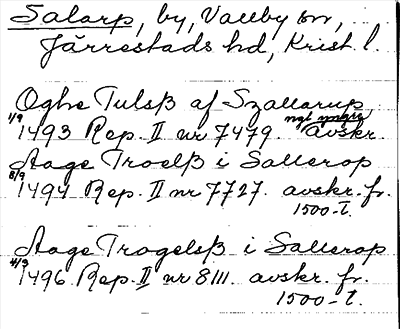 Salarp, by, Vallby sn,
Järrestads hd, Krist. l.
Oghe Tulsß af Szallarup
1/9 1493 Rep. II nr 7479 ngt yngre avskr.
Aage Troelß i Sallerop
8/9 1494 Rep. II nr 7727. avskr. fr.
1500-t.
Aage Trogelsß i Sallerop
4/3 1496 Rep. II nr 8111. avskr. fr.
1500-t.